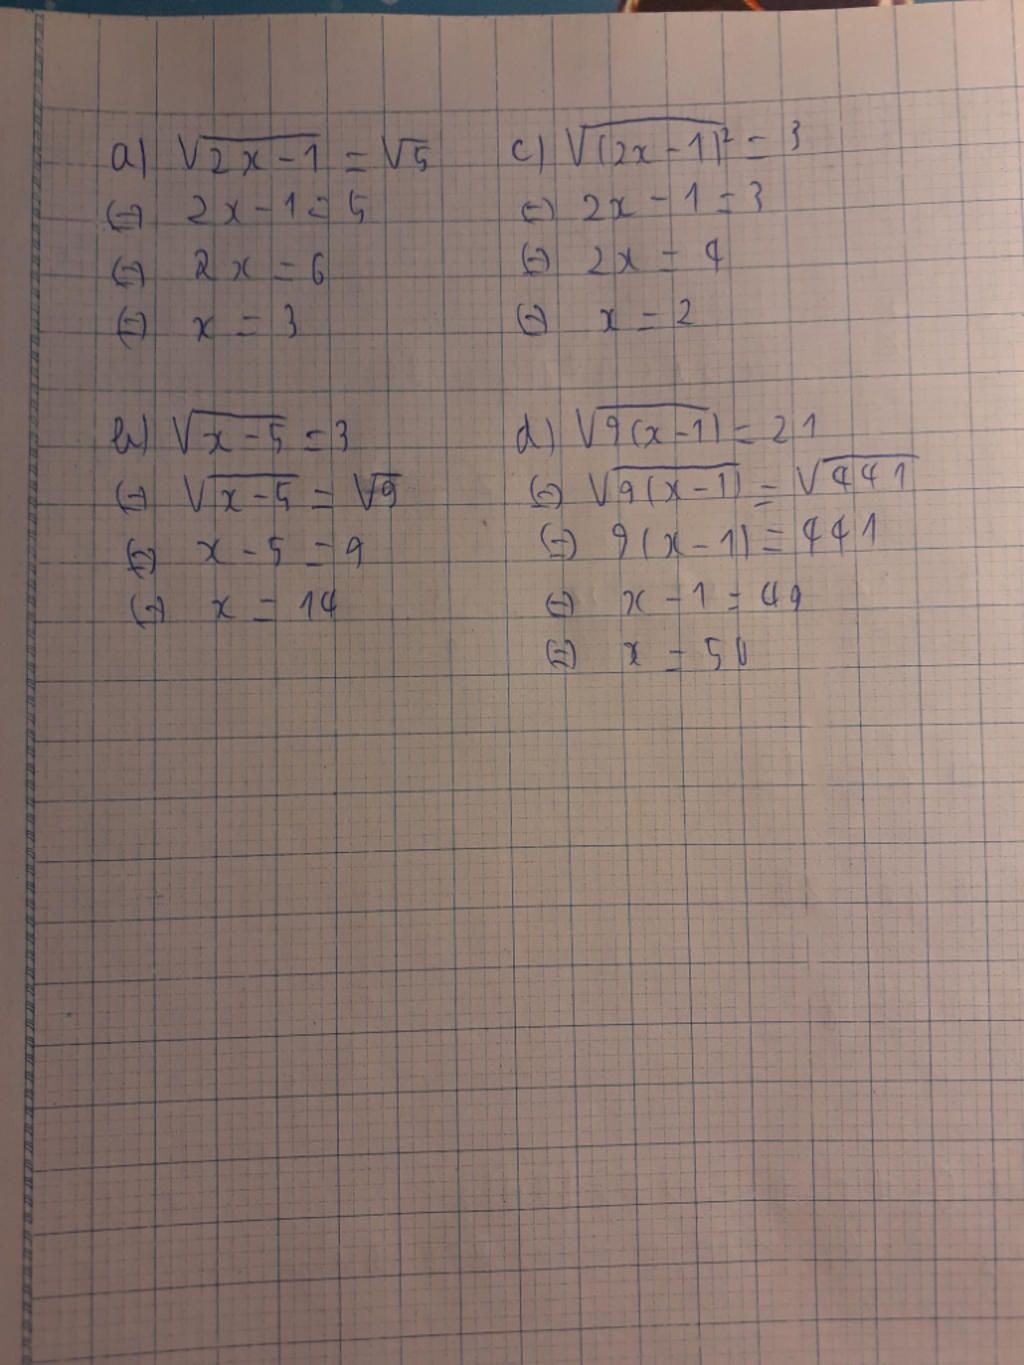 a) √2x-1 = √5
(=) 2x-1 = 5
(=) 2x = 6
(=) x = 3
b) √x-5 = 3
(=) √x-5 = √9
(=) x-5 = 9
(=) x = 14
c) √(2x-1)² = 3
(=) 2x-1 = 3
(=) 2x = 4
(=) x = 2
d) √9(x-1) = 21
(=) √9(x-1) = √441
(=) 9(x-1) = 441
(=) x-1 = 49
(=) x = 50